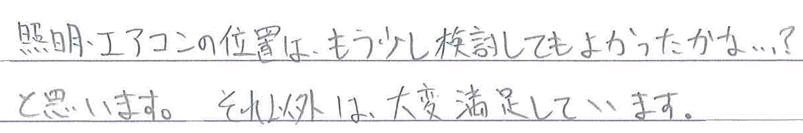 照明・エアコンの位置は、もう少し検討してもよかったかな…?
と思います。 それ以外は、大変満足しています。